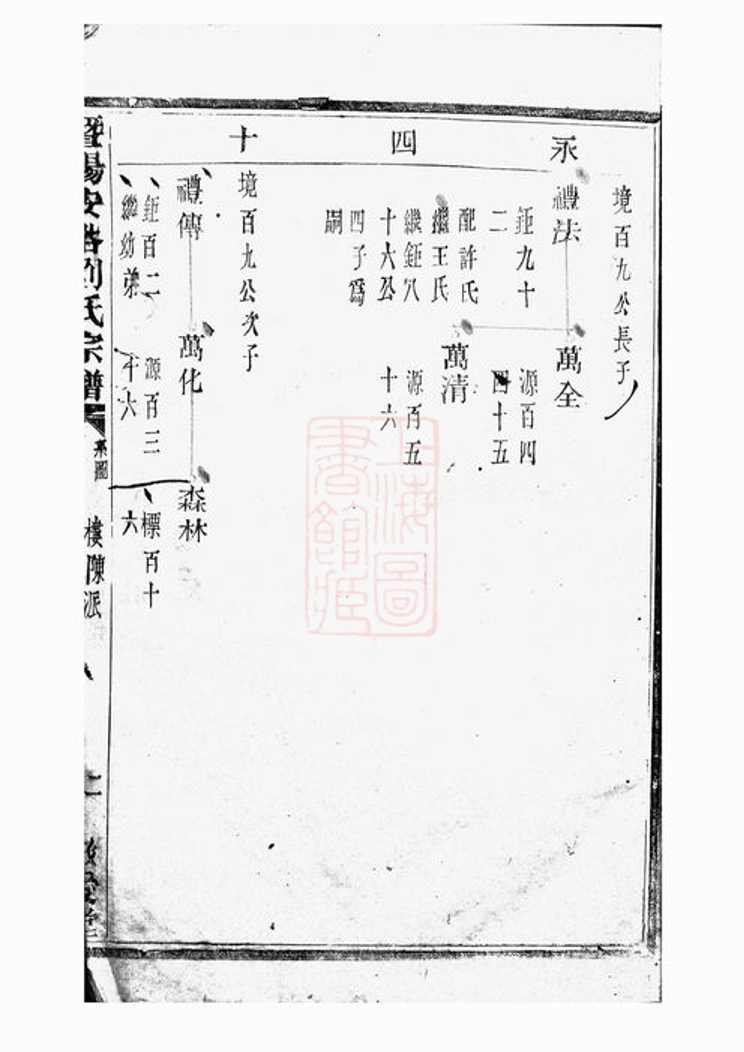 永四十
境百九公長子
禮法
鉅九十
二
配許氏
繼王氏
繼鉅八
十六公
四子爲
嗣
萬全
源百四
四十五
萬清
源百五
十六
境百九公次子
禮傳
鉅百二
繼幼弟
萬化
源百三
十六
森林
標百十
六
暨陽安劉氏宗譜
系圖
樓陳派
二
上海圖書館藏